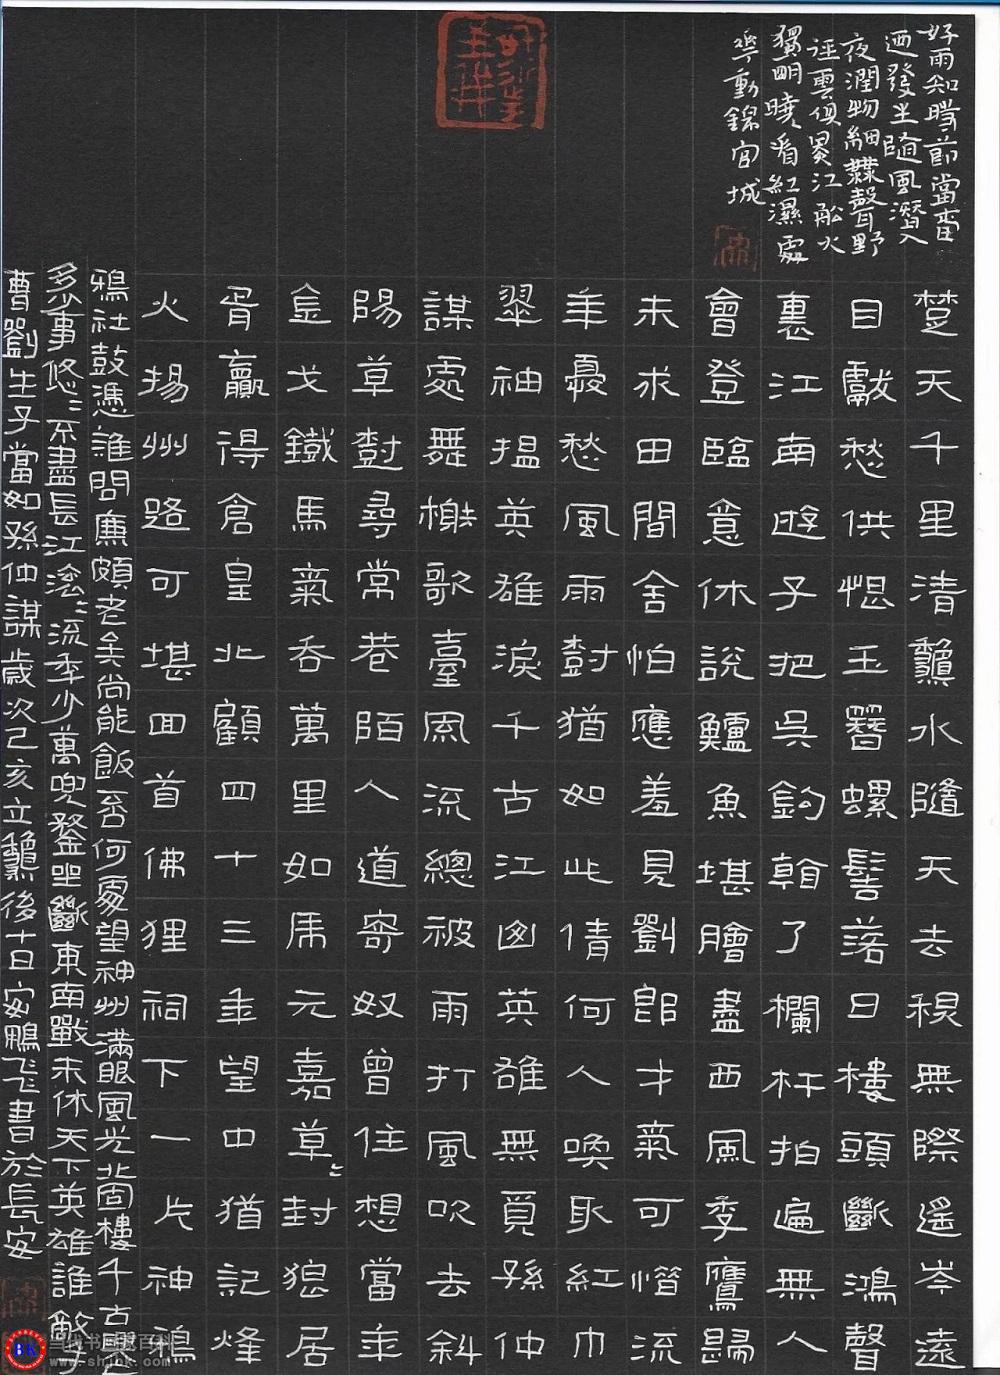 好雨知時節當春
迺發生隨風潛入
夜潤物細無聲野
徑雲俱黑江船火
獨明曉看紅濕處
華動錦官城
楚天千里清龝水隨天去秋無際遙岑遠
目獻愁供恨玉簪螺髻落日樓頭斷鴻聲
裏江南遊子把吳鉤看了欄杆拍遍無人
會登臨意休說鱸魚堪膾盡西風季鷹歸
未求田問舍怕應羞見劉郎才氣可惜流
年憂愁風雨對猶如此倩何人喚取紅巾
翠袖揾英雄淚千古江山英雄無覓孫仲
謀處舞榭歌臺風流總被雨打風吹去斜
陽草尌尋常巷陌人道寄奴曾住想當年
金戈鐵馬氣吞萬里如虎元嘉草〻封狼居
胥贏得倉皇北顧四十三年望中猶記烽
火揚州路可堪回首佛狸祠下一片神鴉
鴉社鼓憑誰問廉頗老矣尚能飯否何處望神州滿眼風光北固樓千古興亡
多少事悠〻不盡長江滾〻流年少萬兜鍪坐斷東南戰未休天下英雄誰敵手
曹劉生子當如孫仲謀歲次己亥立龝後十日安鵬飛書於長安
BK